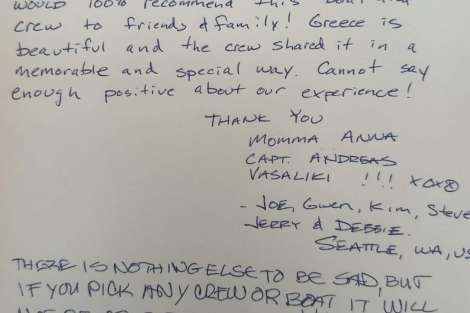 WOULD 100% recommend this boat and
crew to friends & family! Greece is
beautiful and the crew shared it in a
memorable and special way. Cannot say
enough positive about our experience!
THANK YOU
MOMMA ANNA
CAPT. ANDREAS
VASALIKI !!! XOX
- JOE, Gwen, Kim, Steve
JERRY & DEBBIE.
SEATTLE, WA, US
THERE IS NOTHING ELSE TO BE SAID, BUT
IF YOU PICK ANY CREW OR BOAT IT WILL